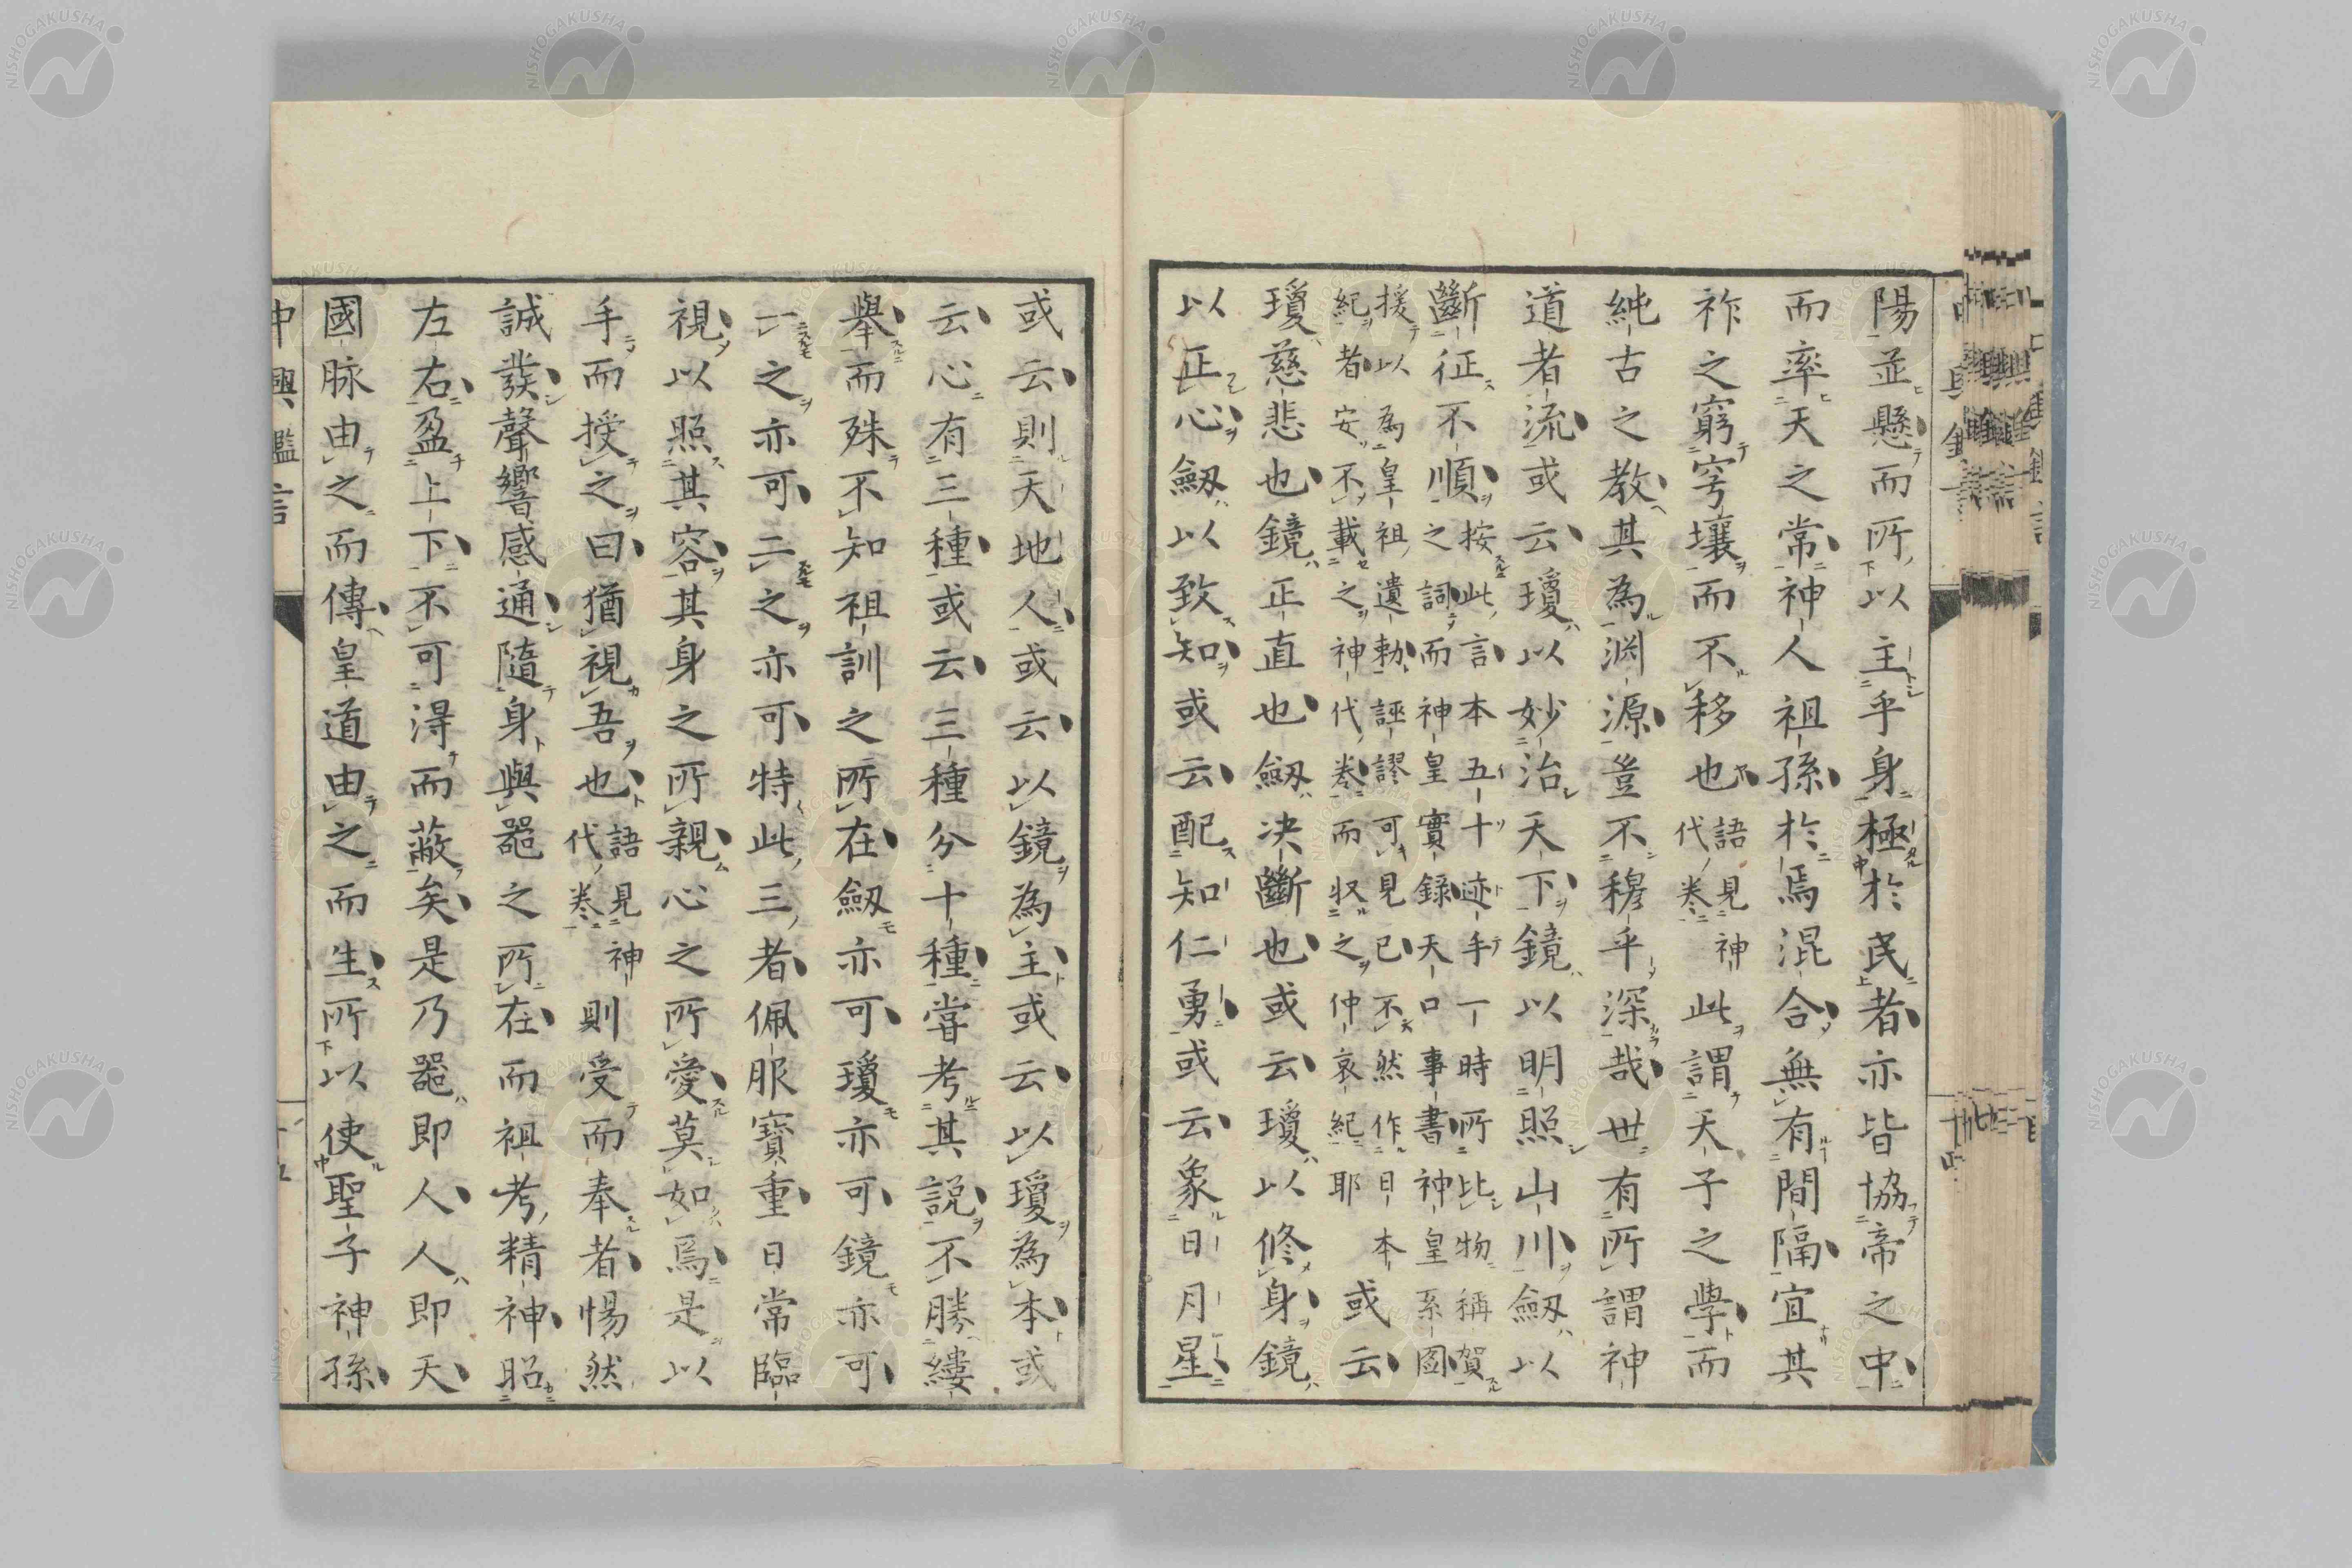 陽並懸而所以主乎身極於民者亦皆協帝之中
而率天之常神人祖孫於焉混合無有間隔宜其
祚之窮穹壤而不移也語見神代巻此謂天子之學而
純古之教其為渊源豈不穆乎深哉世有所謂神
道者流或云瓊以妙治天下鏡以明照山川劔以
斷征不順之詞而神皇實錄天口事書神皇系圖
按此言本五十迹手一時所比物稱賀
援以為皇祖遺勅誣謬可見已不然作日本
紀者安不載之神代巻而収之仲哀紀耶
或云
瓊慈悲也鏡正直也劔决斷也或云瓊以修身鏡
以正心劔以致知或云配知仁勇或云象日月星
或云則天地人或云以鏡為主或云以瓊為本或
云心有三種或云三種分十種嘗考其説不勝縷
舉而殊不知祖訓之所在劔亦可瓊亦可鏡亦可
一之亦可二之亦可特此三者佩服寶重日常臨
視以照其容其身之所親心之所愛莫如焉是以
手而授之曰猶視吾也語見神代巻則受而奉者惕然
誠發聲響感通隨身與噐之所在而祖考精神昭
左右盈上下不可得而蔽矣是乃噐即人人即天
國脉由之而傳皇道由之而生所以使聖子神孫
中興鑑言